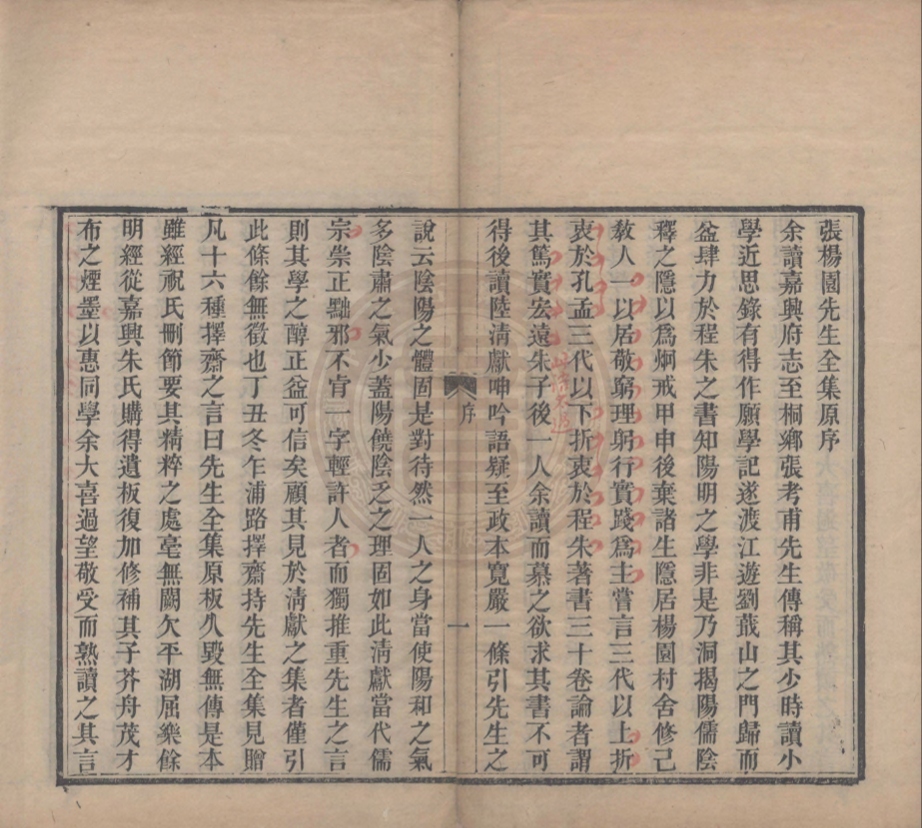 張楊園先生全集原序
余讀嘉興府志至桐鄉張考甫先生傳稱其少時讀小
學近思錄有得作願學記遂渡江遊劉蕺山之門歸而
益肆力於程朱之書知陽明之學非是乃洞揭陽儒陰
釋之隱以爲炯戒甲申後棄諸生隱居楊園村舍修己
敎人一以居敬窮理躬行實踐爲主嘗言三代以上折
衷於孔孟三代以下折衷於程朱著書三十卷論者謂
其篤實宏遠朱子後一人余讀而慕之欲求其書不可
得後讀陸淸獻呻吟語疑至政本寬嚴一條引先生之
序
一
說云陰陽之體固是對待然一人之身當使陽和之氣
多陰肅之氣少蓋陽饒陰乏之理固如此淸獻當代儒
宗崇正黜邪不肯一字輕許人者而獨推重先生之言
則其學之醇正益可信矣顧其見於淸獻之集者僅引
此條餘無徵也丁丑冬乍浦路擇齋持先生全集見贈
凡十六種擇齋之言曰先生全集原板久毀無傳是本
雖經祝氏刪節要其精粹之處毫無闕欠平湖屈樂餘
明經從嘉興朱氏購得遺板復加修補其子芥舟茂才
布之煙墨以惠同學余大喜過望敬受而熟讀之其言